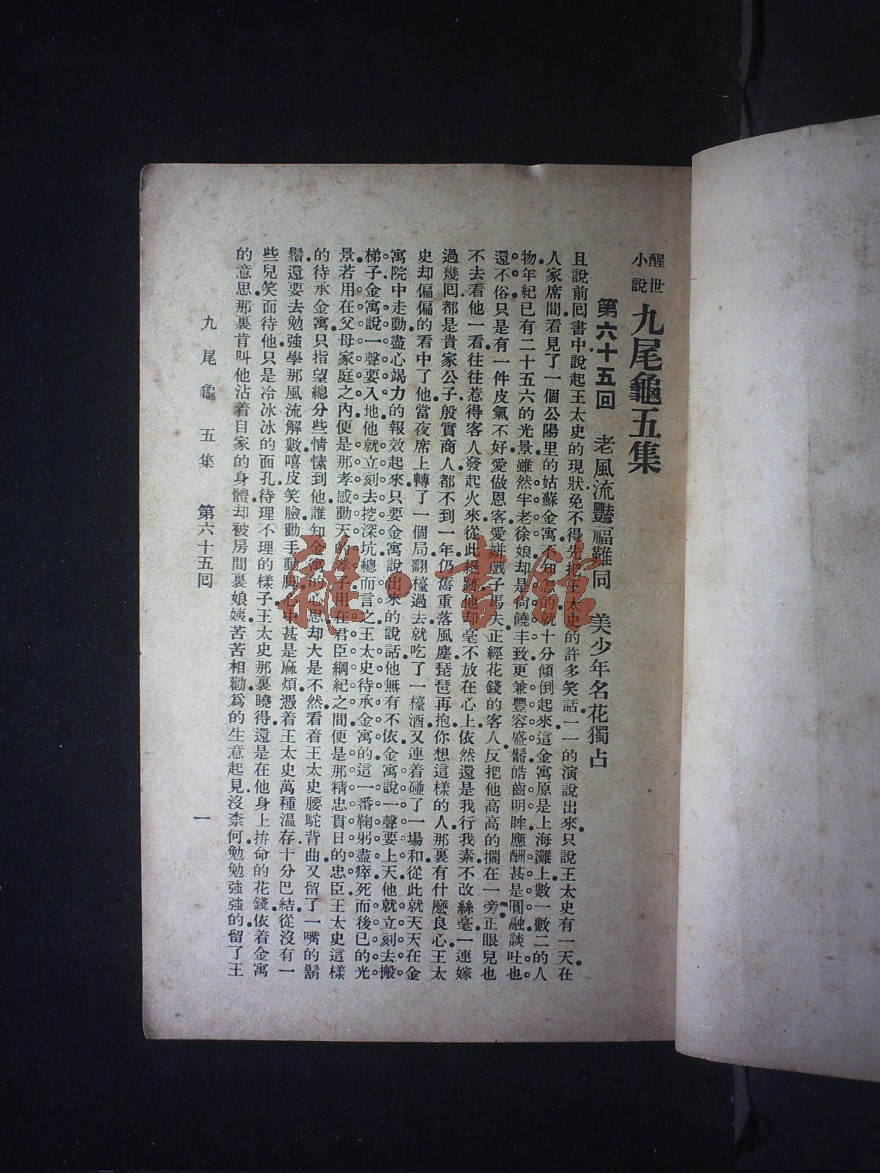 醒世小說 九尾龜五集
第六十五回 老風流豔福難同 美少年名花獨占
且說前回書中說起王太史的現狀免不得先把王太史的許多笑話一一的演說出來只說王太史有一天在
人家席間看見了一個公陽里的姑蘇金寓不知怎的就十分傾倒起來這金寓原是上海灘上數一數二的人
物年紀已有二十五六的光景雖然半老徐娘却是尙饒丰致更兼豐容盛鬋皓齒明眸應酬甚是圓融談吐也
還不俗只是有一件皮氣不好愛做恩客愛姘戲子馬夫正經花錢的客人反把他高高的擱在一旁正眼兒也
不去看他一看往往惹得客人發起火來從此絕跡他却毫不放在心上依然還是我行我素不改絲毫一連嫁
過幾回都是貴家公子殷實商人都不到一年仍舊重落風塵琵琶再抱你想這樣的人那裏有什麼良心王太
史却偏偏的看中了他當夜席上轉了一個局翻檯過去就吃了一檯酒又連着碰了一場和從此就天天在金
寓院中走動盡心竭力的報效起來只要金寓說出來的說話他無有不依金寓說一聲要上天他就立刻去搬
梯子金寓說一聲要入地他就立刻去挖深坑總而言之王太史待承金寓的這一番鞠躬盡瘁死而後已的光
景若用在父母家庭之內便是那孝感動天的孝子用在君臣綱紀之間便是那精忠貫日的忠臣王太史這樣
的待承金寓只指望總分些情愫到他誰知金寓的心思却大是不然看着王太史腰駝背曲又留了一嘴的鬍
鬚還要去勉強學那風流解數嘻皮笑臉動手動脚心中甚是麻煩憑着王太史萬種温存十分巴結從沒有一
些兒笑面待他只是冷冰冰的面孔待理不理的樣子王太史那裏曉得還是在他身上拚命的花錢依着金寓
的意思那裏肯叫他沾着自家的身體却被房間裏娘姨苦苦相勸爲的生意起見沒柰何勉勉強強的留了王
九尾龜五集 第六十五回 一
雜·書館